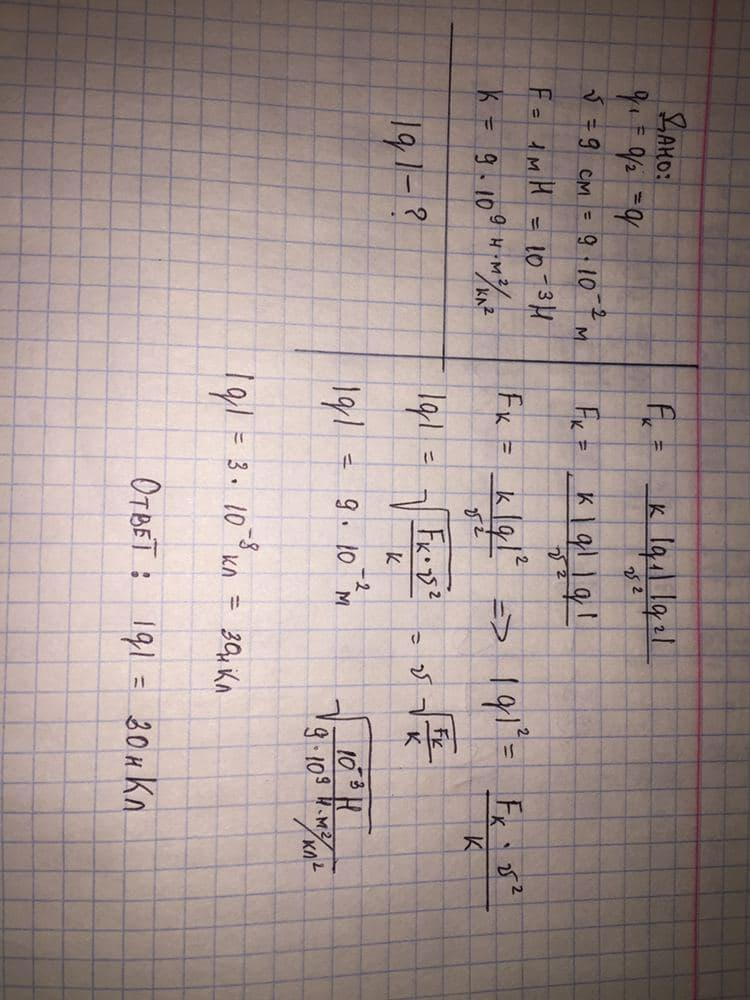 Дано:
q₁ = q₂ = q
r = 9 см = 9 · 10⁻² м
F = 1 мН = 10⁻³ Н
K = 9 · 10⁹ Н·м²/Кл²
|q| – ?
Fк = K |q₁| |q₂| / r²
Fк = K |q| |q| / r²
Fк = K |q|² / r² => |q|² = Fк · r² / K
|q| = √(Fк · r² / K) = r √(Fк / K)
|q| = 9 · 10⁻² м √(10⁻³ Н / 9 · 10⁹ Н·м²/Кл²)
|q| = 3 · 10⁻⁸ Кл = 30 нКл
Ответ: |q| = 30 нКл